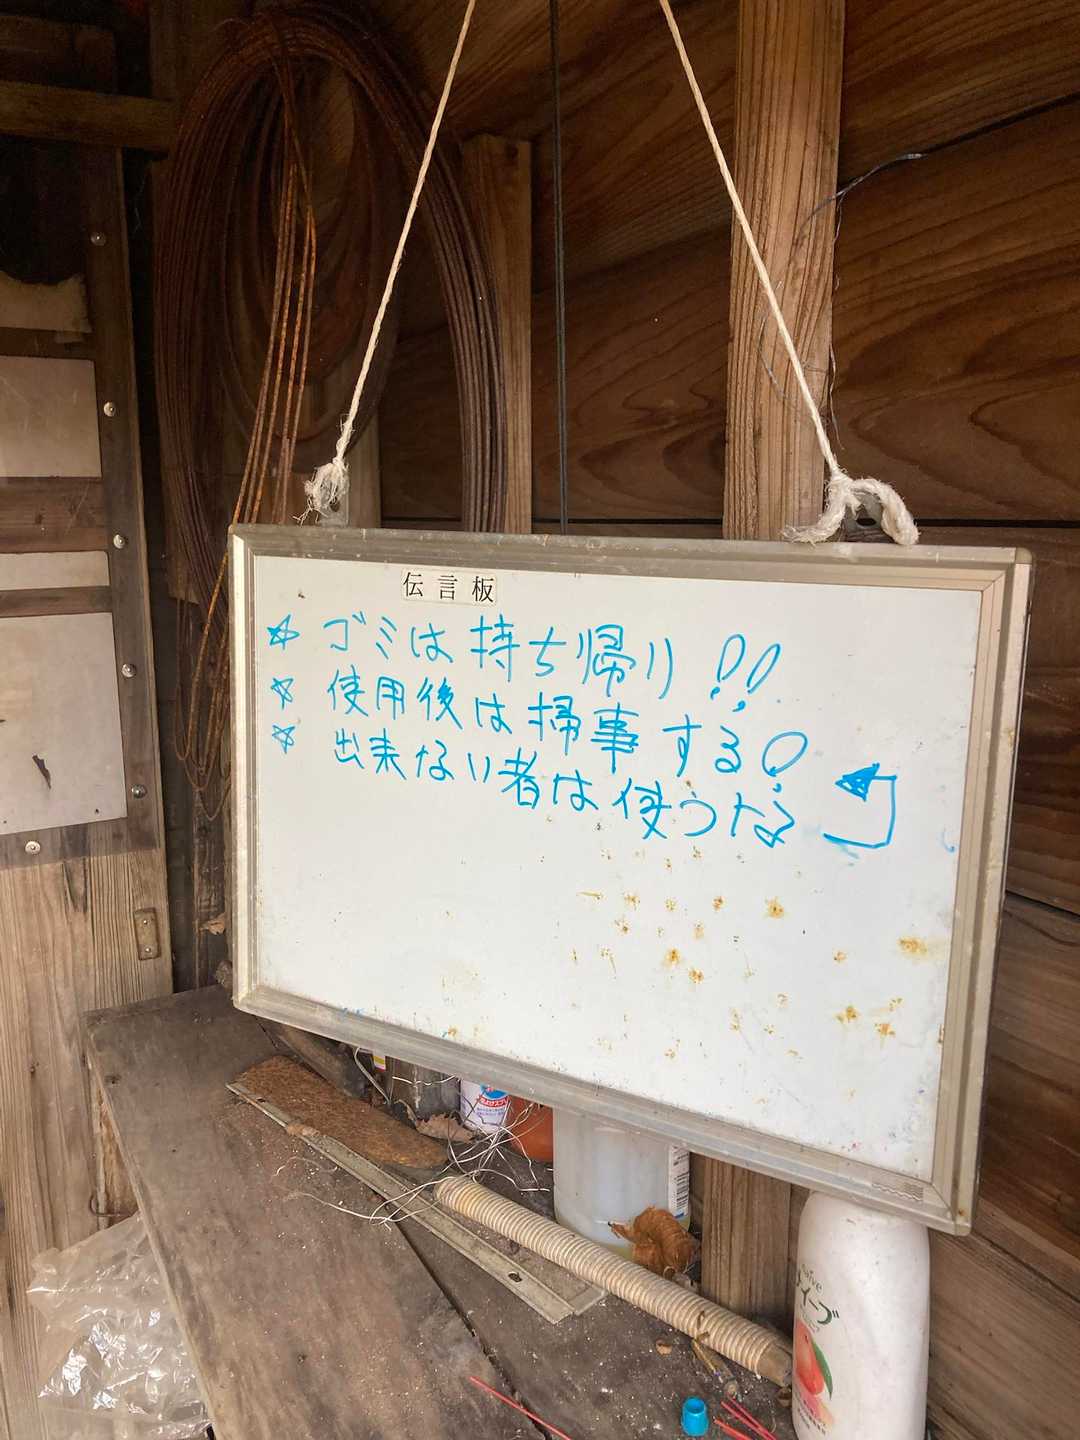 伝言板
☆ ゴミは持ち帰り!!
☆ 使用後は掃事する!
☆ 出来ない者は使うな
naive
ナイーブ